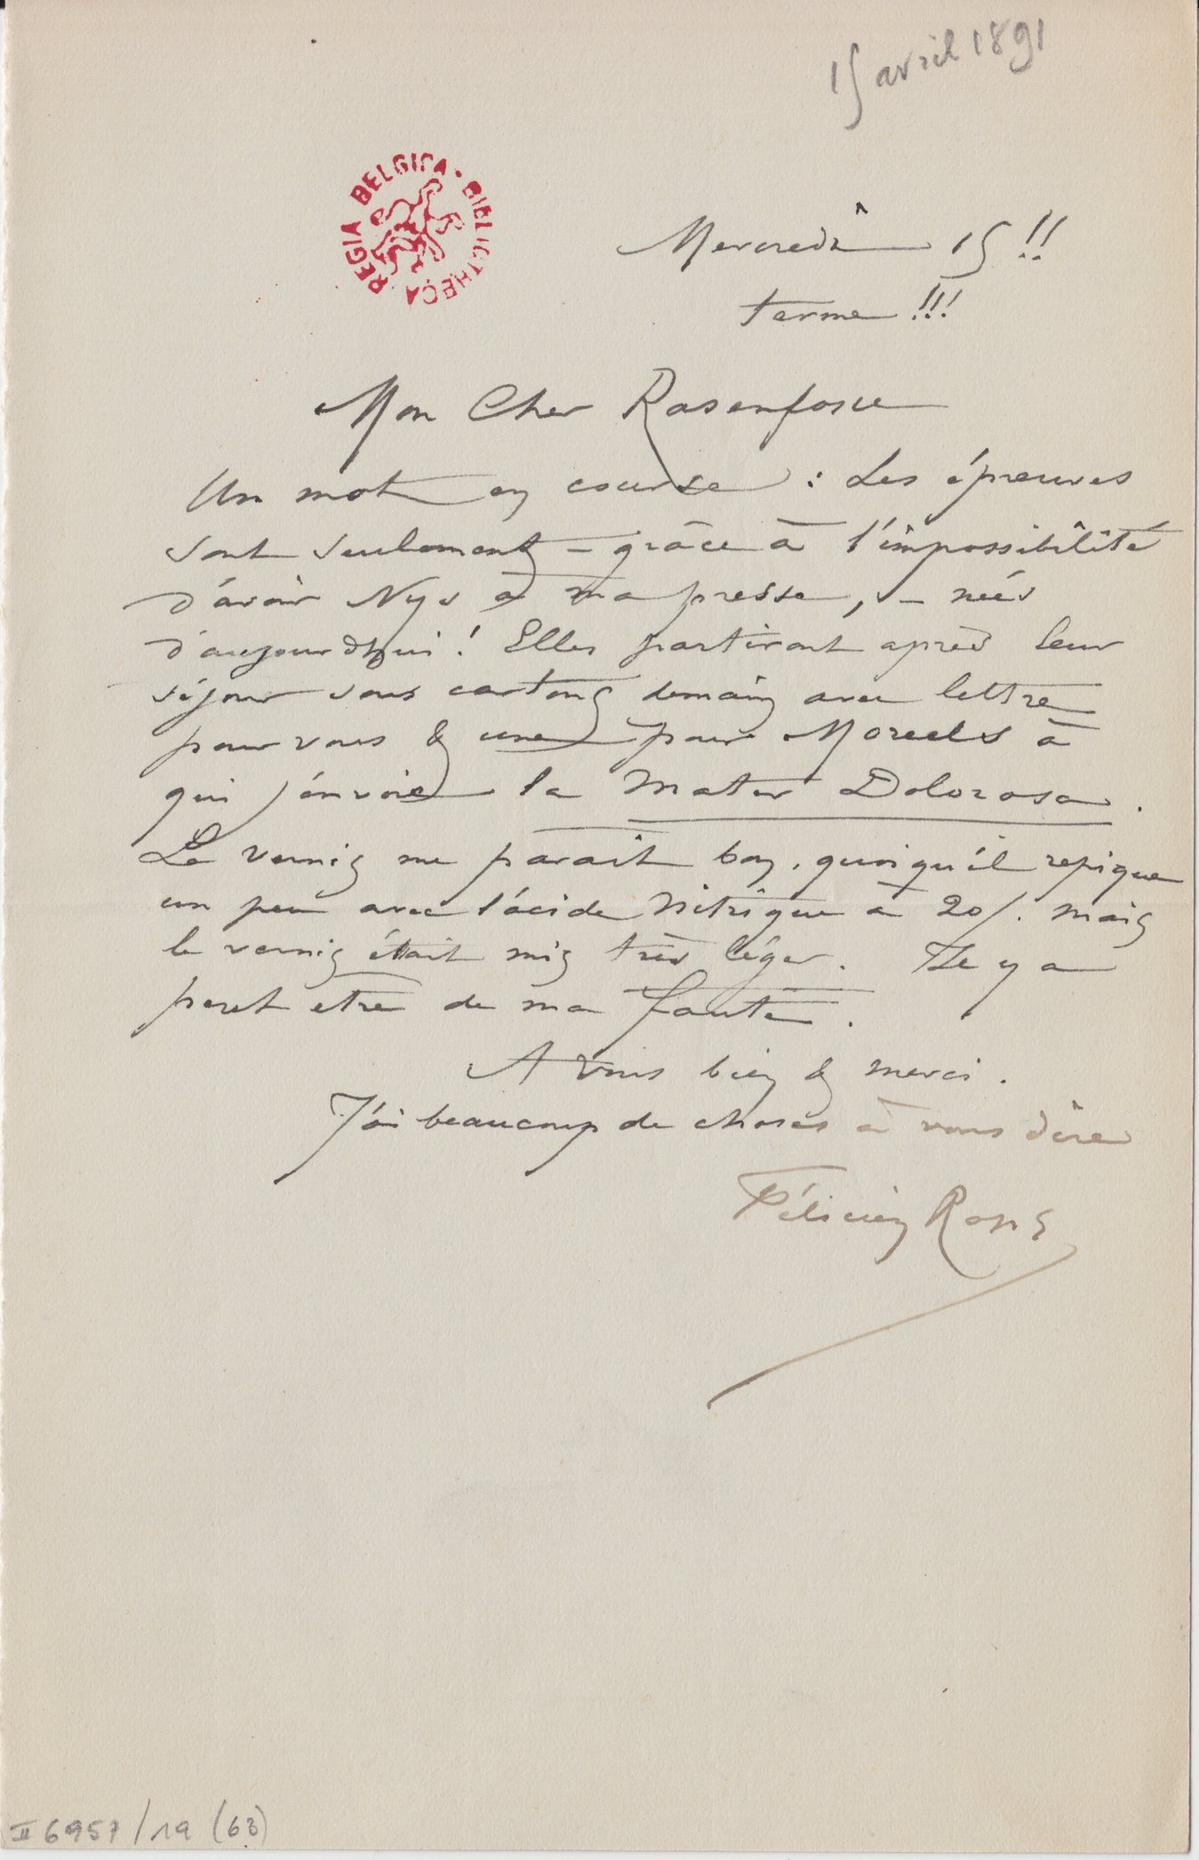 15 avril 1891
REGIA BELGICA · BIBLIOTHECA
Mercredi 15 !!
terme !!!
Mon Cher Rassenfosse
Un mot en course : Les épreuves
sont seulement – grâce à l'impossibilité
d'avoir Nys à ma presse, – nées
d'aujourdhui ! Elles partiront après leur
séjour sous cartons demain avec lettre
pour vous & une pour à
qui j'envoie la Mater Dolorosa.
Le vernis me parait bon, quoiqu'il repique
un peu avec l'acide Nitrique à 20/. mais
le vernis était mis très léger. Il y a
peut etre de ma faute.
A vous bien & merci.
J'ai beaucoup de choses à vous dire
Félicien Rops
II 6957/19 (63)